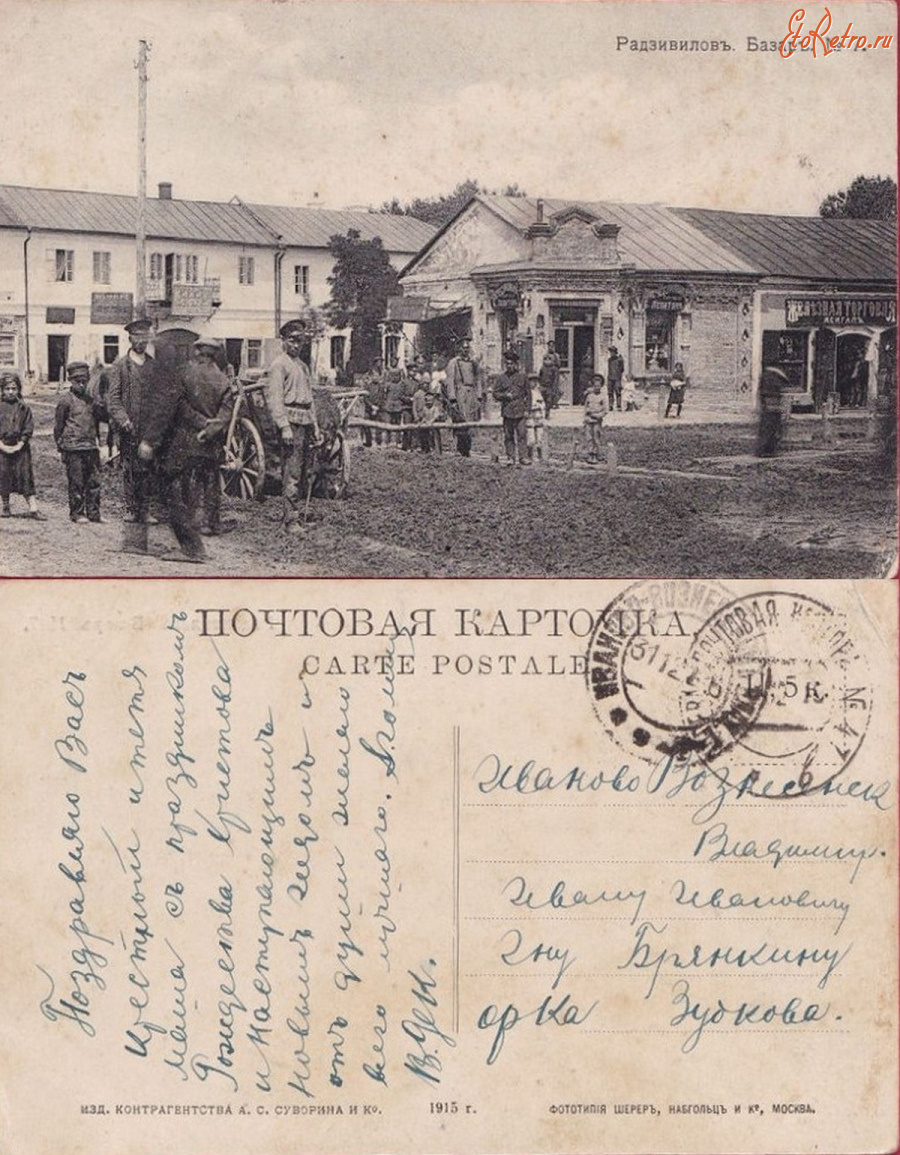 EtoRetro.ru
Радзивиловъ. Базаръ. № 7.
ЖЕЛѢЗНАЯ ТОРГОВЛЯ
ПОЧТОВАЯ КАРТОЧКА
CARTE POSTALE
Ц. 5 к.
ИВАНОВО-ВОЗНЕС
31 12
ПОЧТОВАЯ КОНТОРА № 47
Поздравляю Васъ
Крестный и тетя
маша съ праздникомъ
Рождества Христова
и Наступающимъ
новымъ годомъ и
отъ души желаю
всего лучшаго.
В. Фек.
Иваново Вознесенск
Владимир.
Ивану Ивановичу
Гну Брянкину
фрка Зубкова.
ИЗД. КОНТРАГЕНТСТВА А. С. СУВОРИНА И Кº.
1915 г.
ФОТОТИПІЯ ШЕРЕРЪ, НАБГОЛЬЦЪ И Кº, МОСКВА.